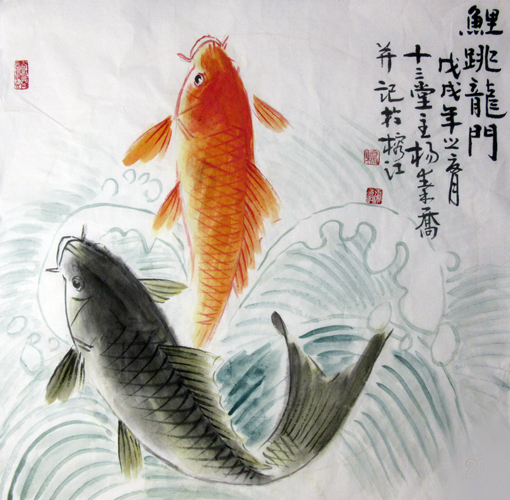 鯉跳龍門
戊戌年之月
十三堂主楊喬
并記於榕江